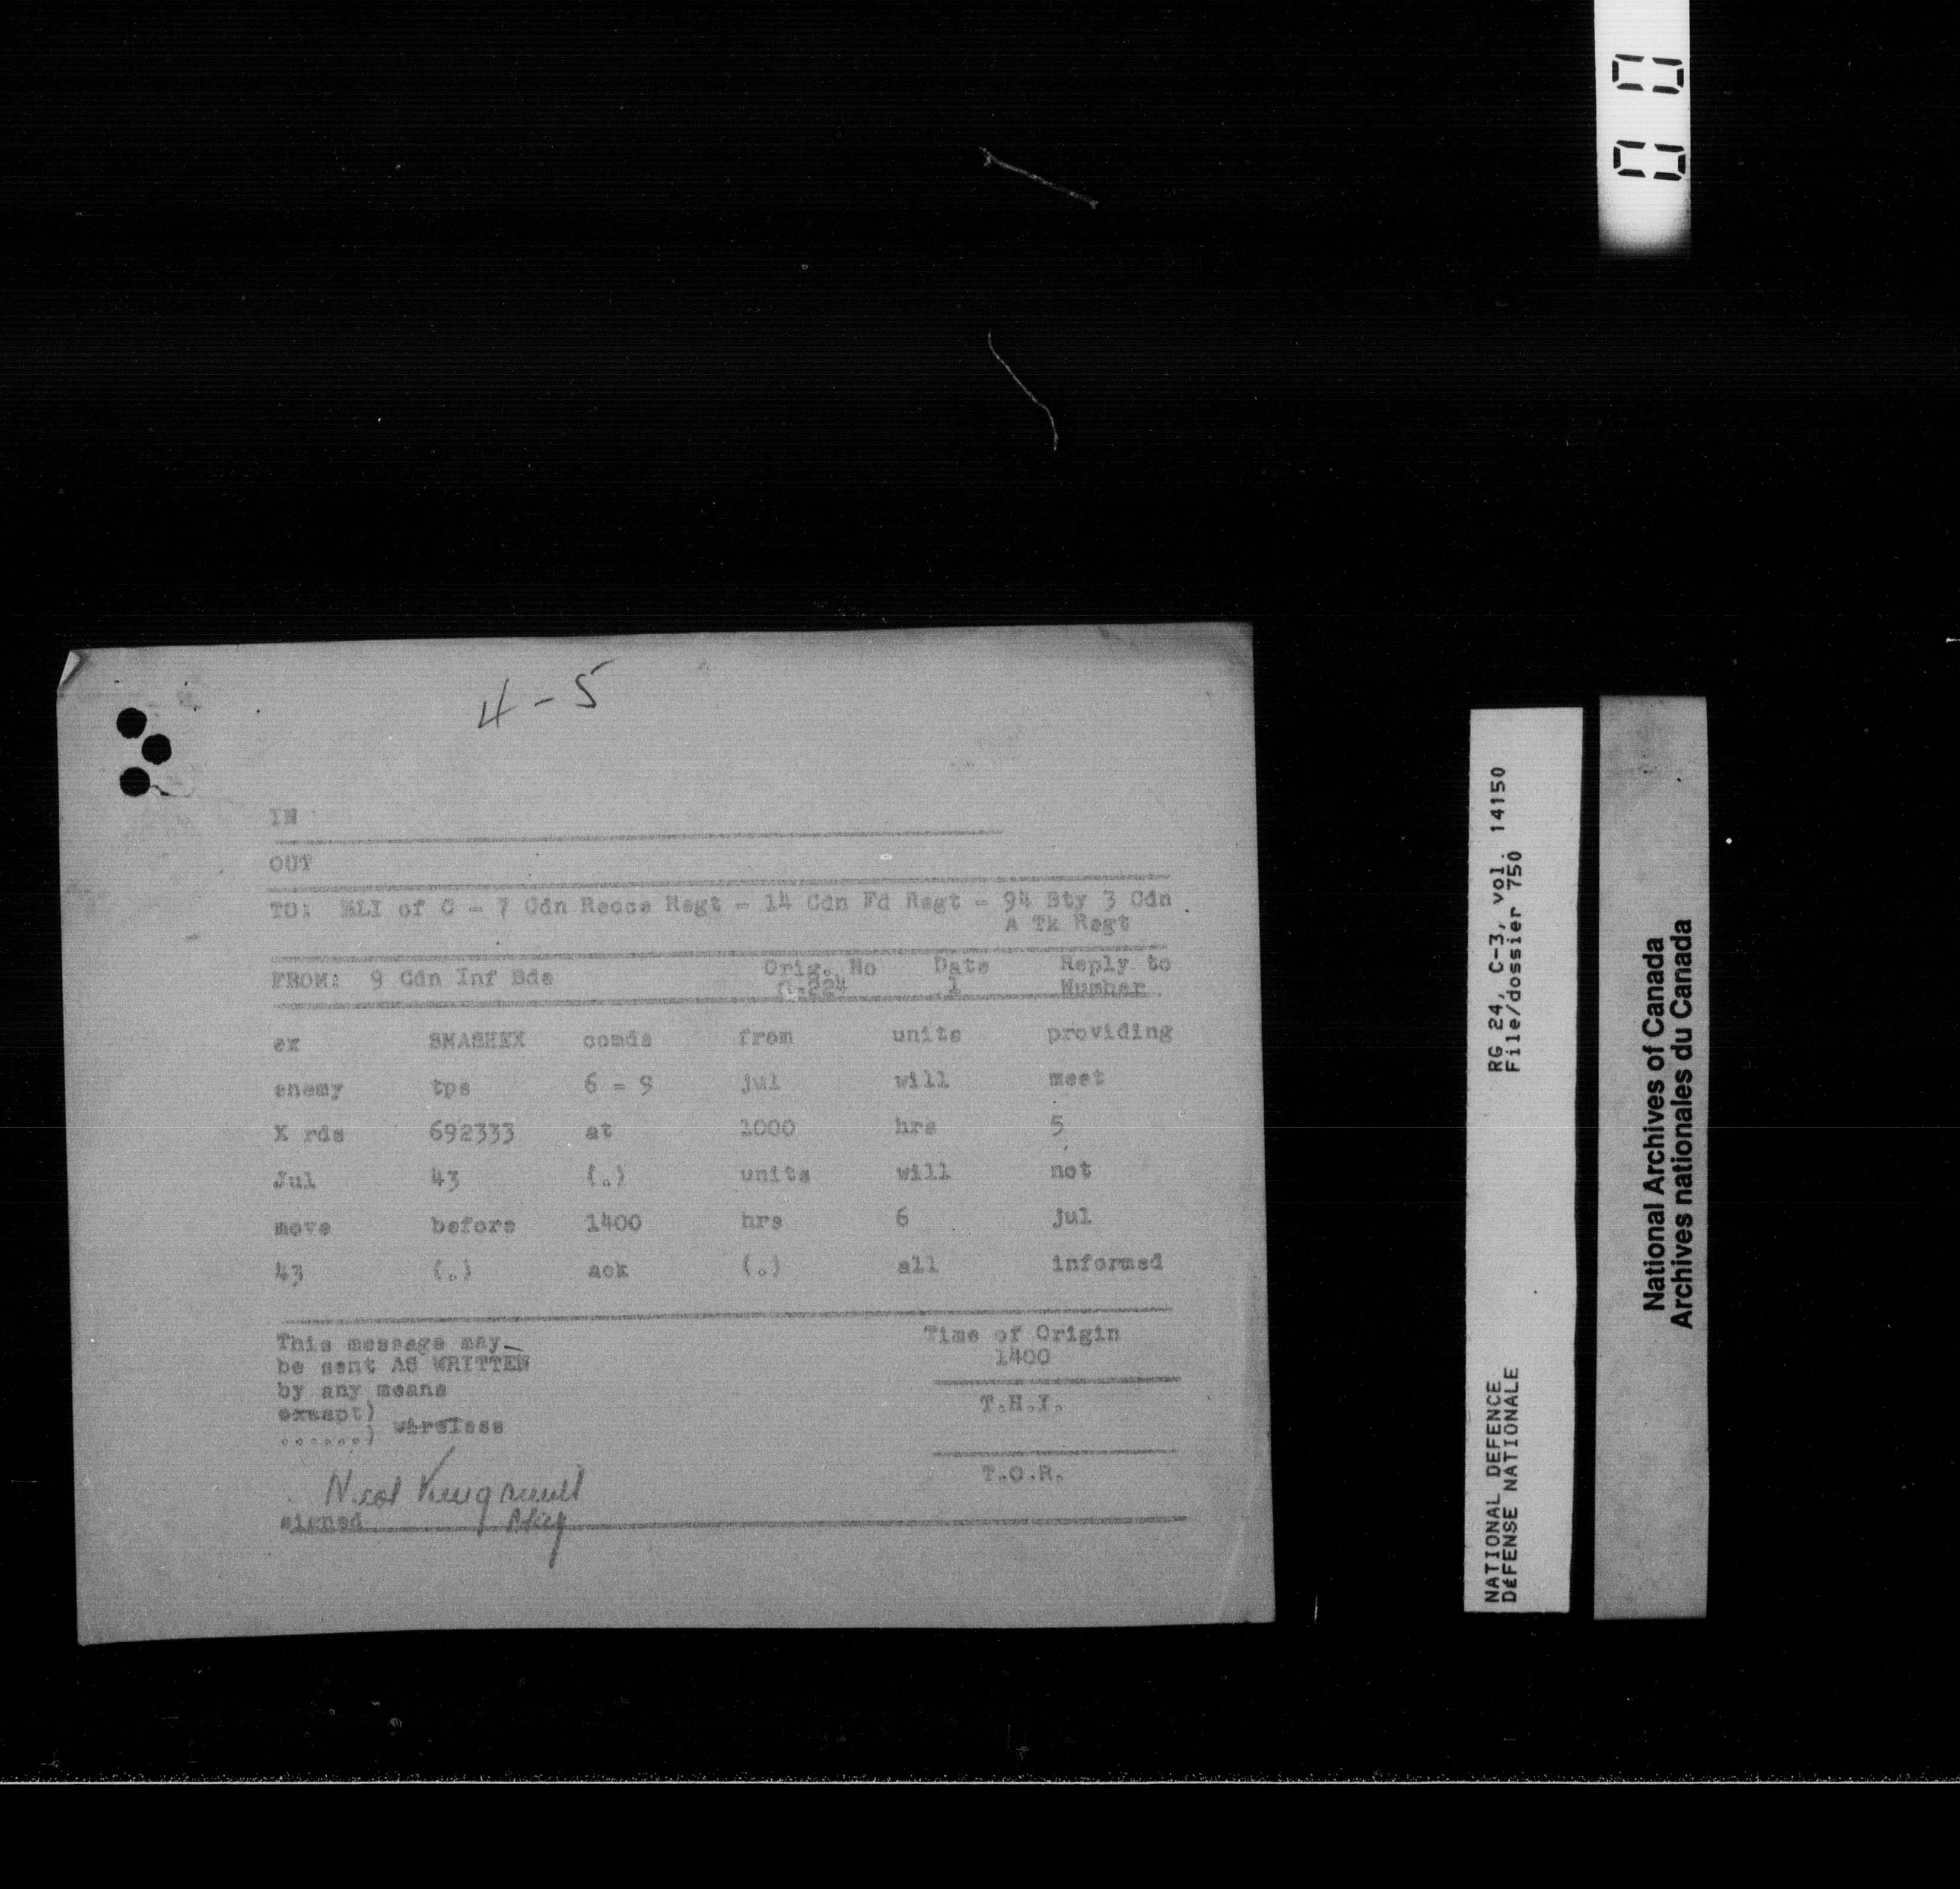 4-5
IN
OUT
TO: HLI of C - 7 Cdn Recce Regt - 14 Cdn Fd Regt - 94 Bty 3 Cdn
A Tk Regt
FROM: 9 Cdn Inf Bde Orig. No Date Reply to
1 Number
ex SMASHEX comds from units providing
enemy tps 6 - 9 jul will meet
X rds 692333 at 1000 hrs 5
Jul 43 (.) units will not
move before 1400 hrs 6 jul
43 (.) ack (.) all informed
This message may
be sent AS WRITTEN
by any means
except)
......) wireless
Time of Origin
1400
T.H.I.
T.O.R.
signed
RG 24, C-3, vol. 14150
File/dossier 750
NATIONAL DEFENCE
DÉFENSE NATIONALE
National Archives of Canada
Archives nationales du Canada